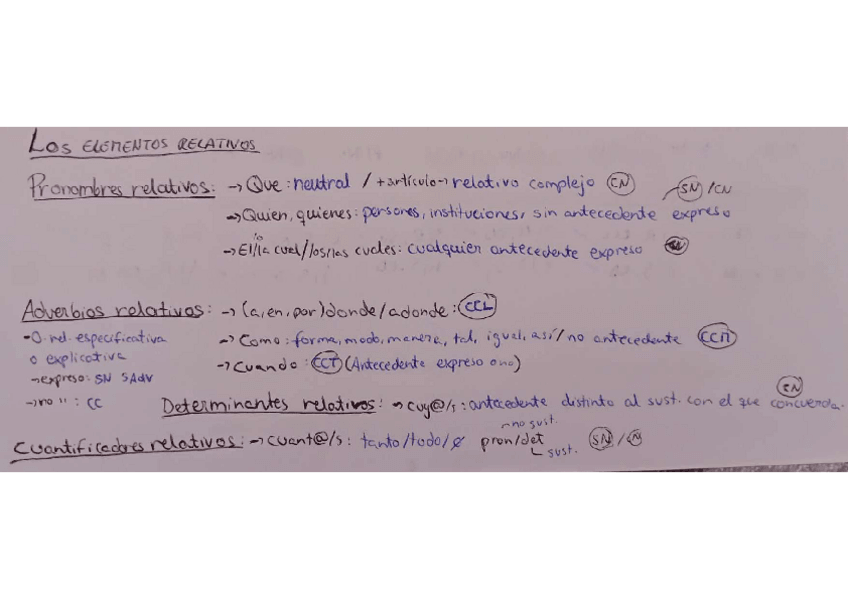 Los ELEMENTOS RELATIVOS
Pronombres relativos: → Que: neutral / + artículo → relativo complejo (CN)
→ Quien, quienes: personas, instituciones, sin antecedente expreso (SN) / CN
→ El/la/lo cual/los/las cuales: cualquier antecedente expreso
Adverbios relativos: → (a, en, por) donde / adonde: (CCL)
- O. rel. especificativa
o explicativa
→ expreso: SN SAdv
→ no '': CC
→ Como: forma, modo, manera, tal, igual, así / no antecedente (CCM)
→ Cuando: (CCT) (Antecedente expreso o no)
Determinantes relativos: → cuy@/s: antecedente distinto al sust. con el que concuerda. (CN)
Cuantificadores relativos: → cuant@/s: tanto/todo/ø pron/det (SN) / (CN)
no sust.
sust.